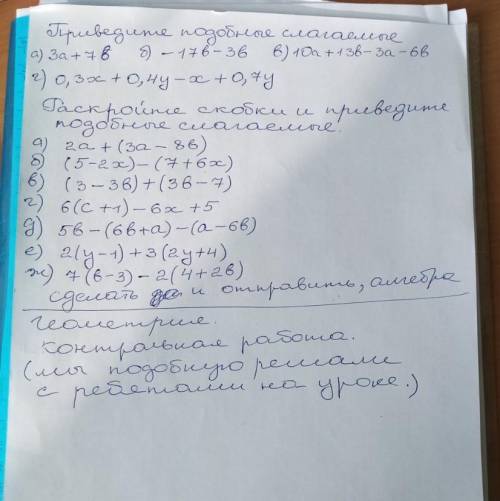 Приведите подобные слагаемые
а) 3а+7в б) -17в-3в в) 10а+13в-3а-6в
г) 0,3х+0,4у-х+0,7у
Раскройте скобки и приведите
подобные слагаемые.
а) 2а+(3а-8в)
б) (5-2х)-(7+6х)
в) (3-3в)+(3в-7)
г) 6(с+1)-6х+5
д) 5в-(6в+а)-(а-6в)
е) 2(у-1)+3(2у+4)
ж) 7(в-3)-2(4+2в)
сделать и отправить, алгебра
Геометрия.
контрольная работа.
(мы подобную решали
с ребятами на уроке.)